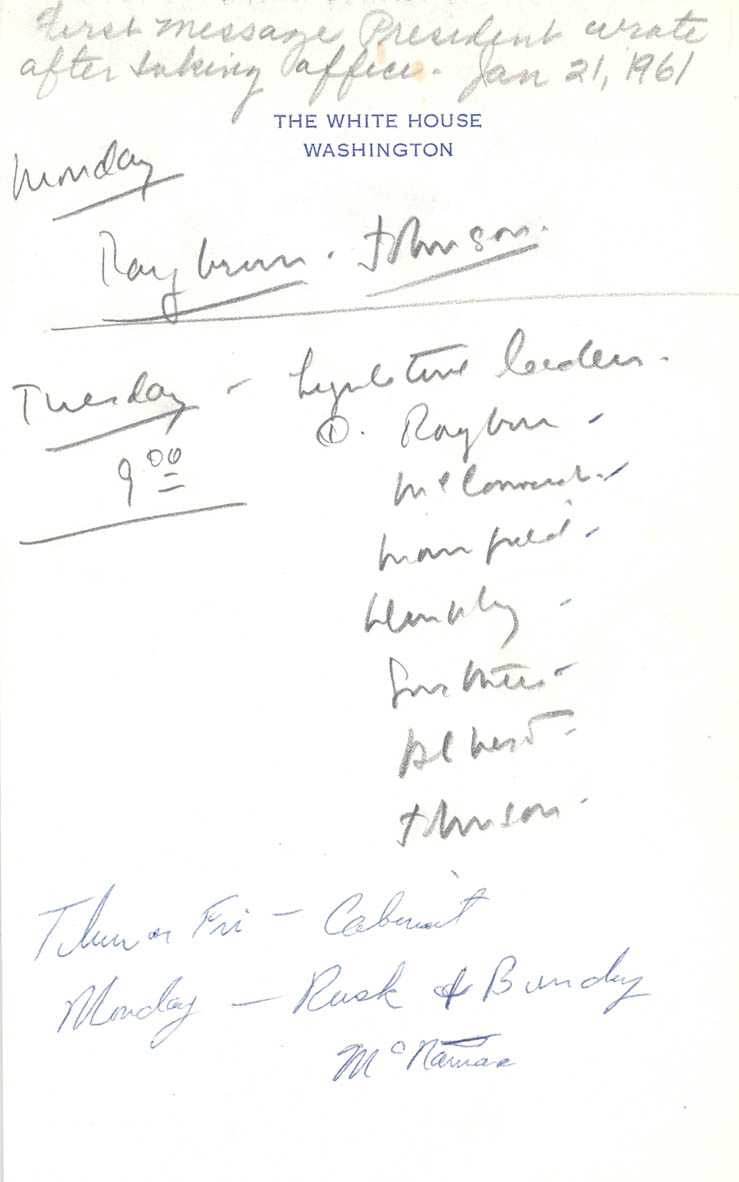 First message President wrote
after taking office. Jan 21, 1961
THE WHITE HOUSE
WASHINGTON
Monday
Rayburn. Johnson.
Tuesday - Legislative leaders.
9 00
① . Rayburn -
McCormack -
Mansfield -
Humphrey -
Smathers -
Albert -
Johnson -
Thur or Fri - Cabinet
Monday - Rusk & Bundy
McNamara